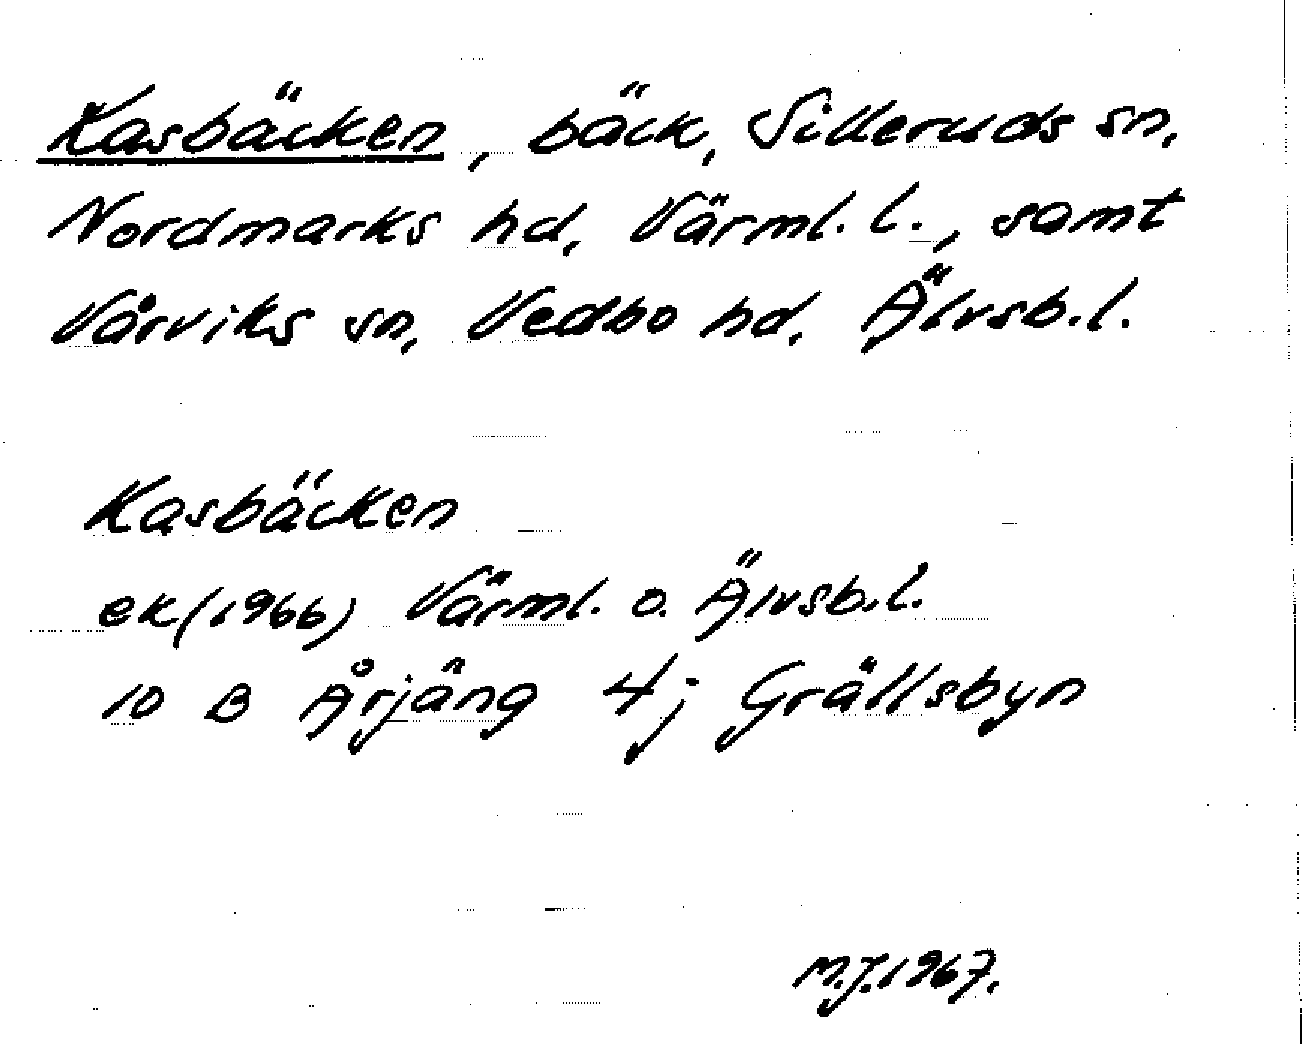 Kasbäcken, bäck, Silleruds sn,
Nordmarks hd, Värml. l., samt
Vårviks sn, Vedbo hd, Älvsb.l.
Kasbäcken
ek(1966) Värml. o. Älvsb.l.
10 B Årjäng 4j Grällsbyn
M.J.1967.